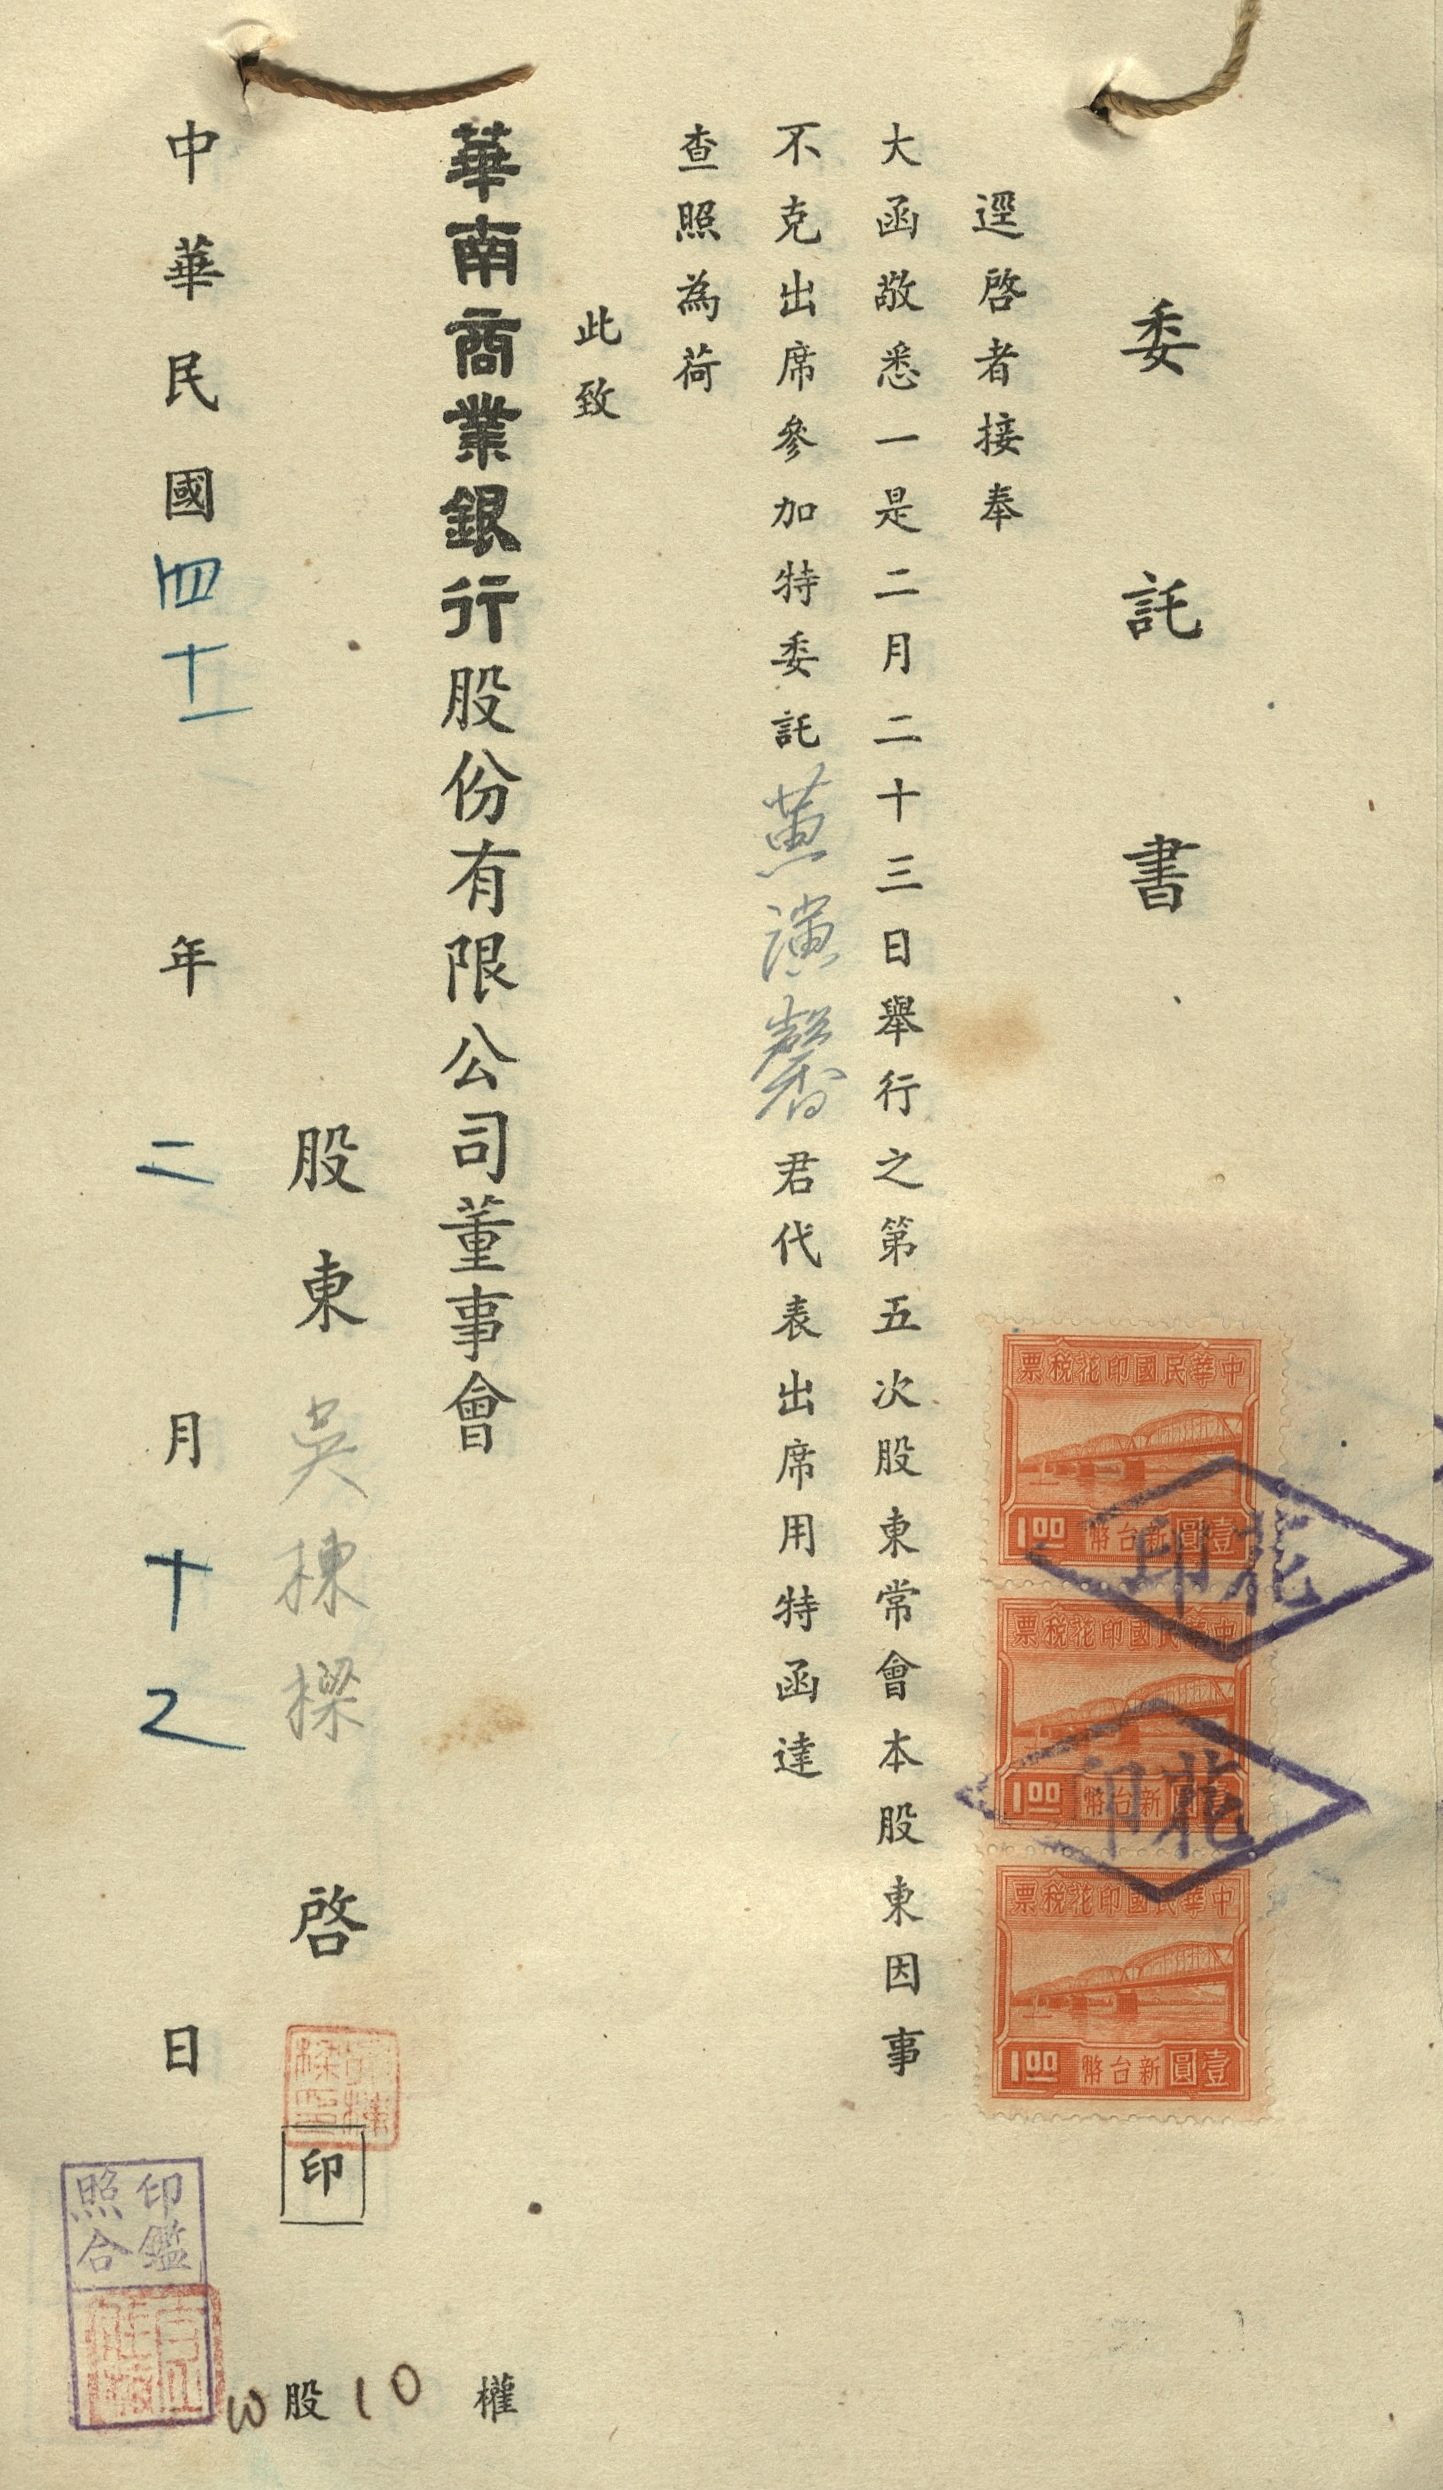 委託書
逕啓者接奉
大函敬悉一是二月二十三日舉行之第五次股東常會本股東因事
不克出席參加特委託黃演馨君代表出席用特函達
查照為荷
此致
華南商業銀行股份有限公司董事會
股東吳棟樑啓
印
中華民國四十一年二月十九日
10股10權
印鑑
照合
中華民國印花稅票
壹圓新台幣
1.00
中華民國印花稅票
壹圓新台幣
1.00
中華民國印花稅票
壹圓新台幣
1.00
花印
花印